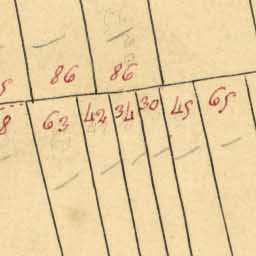 86 86
63 42 34 30 45 65